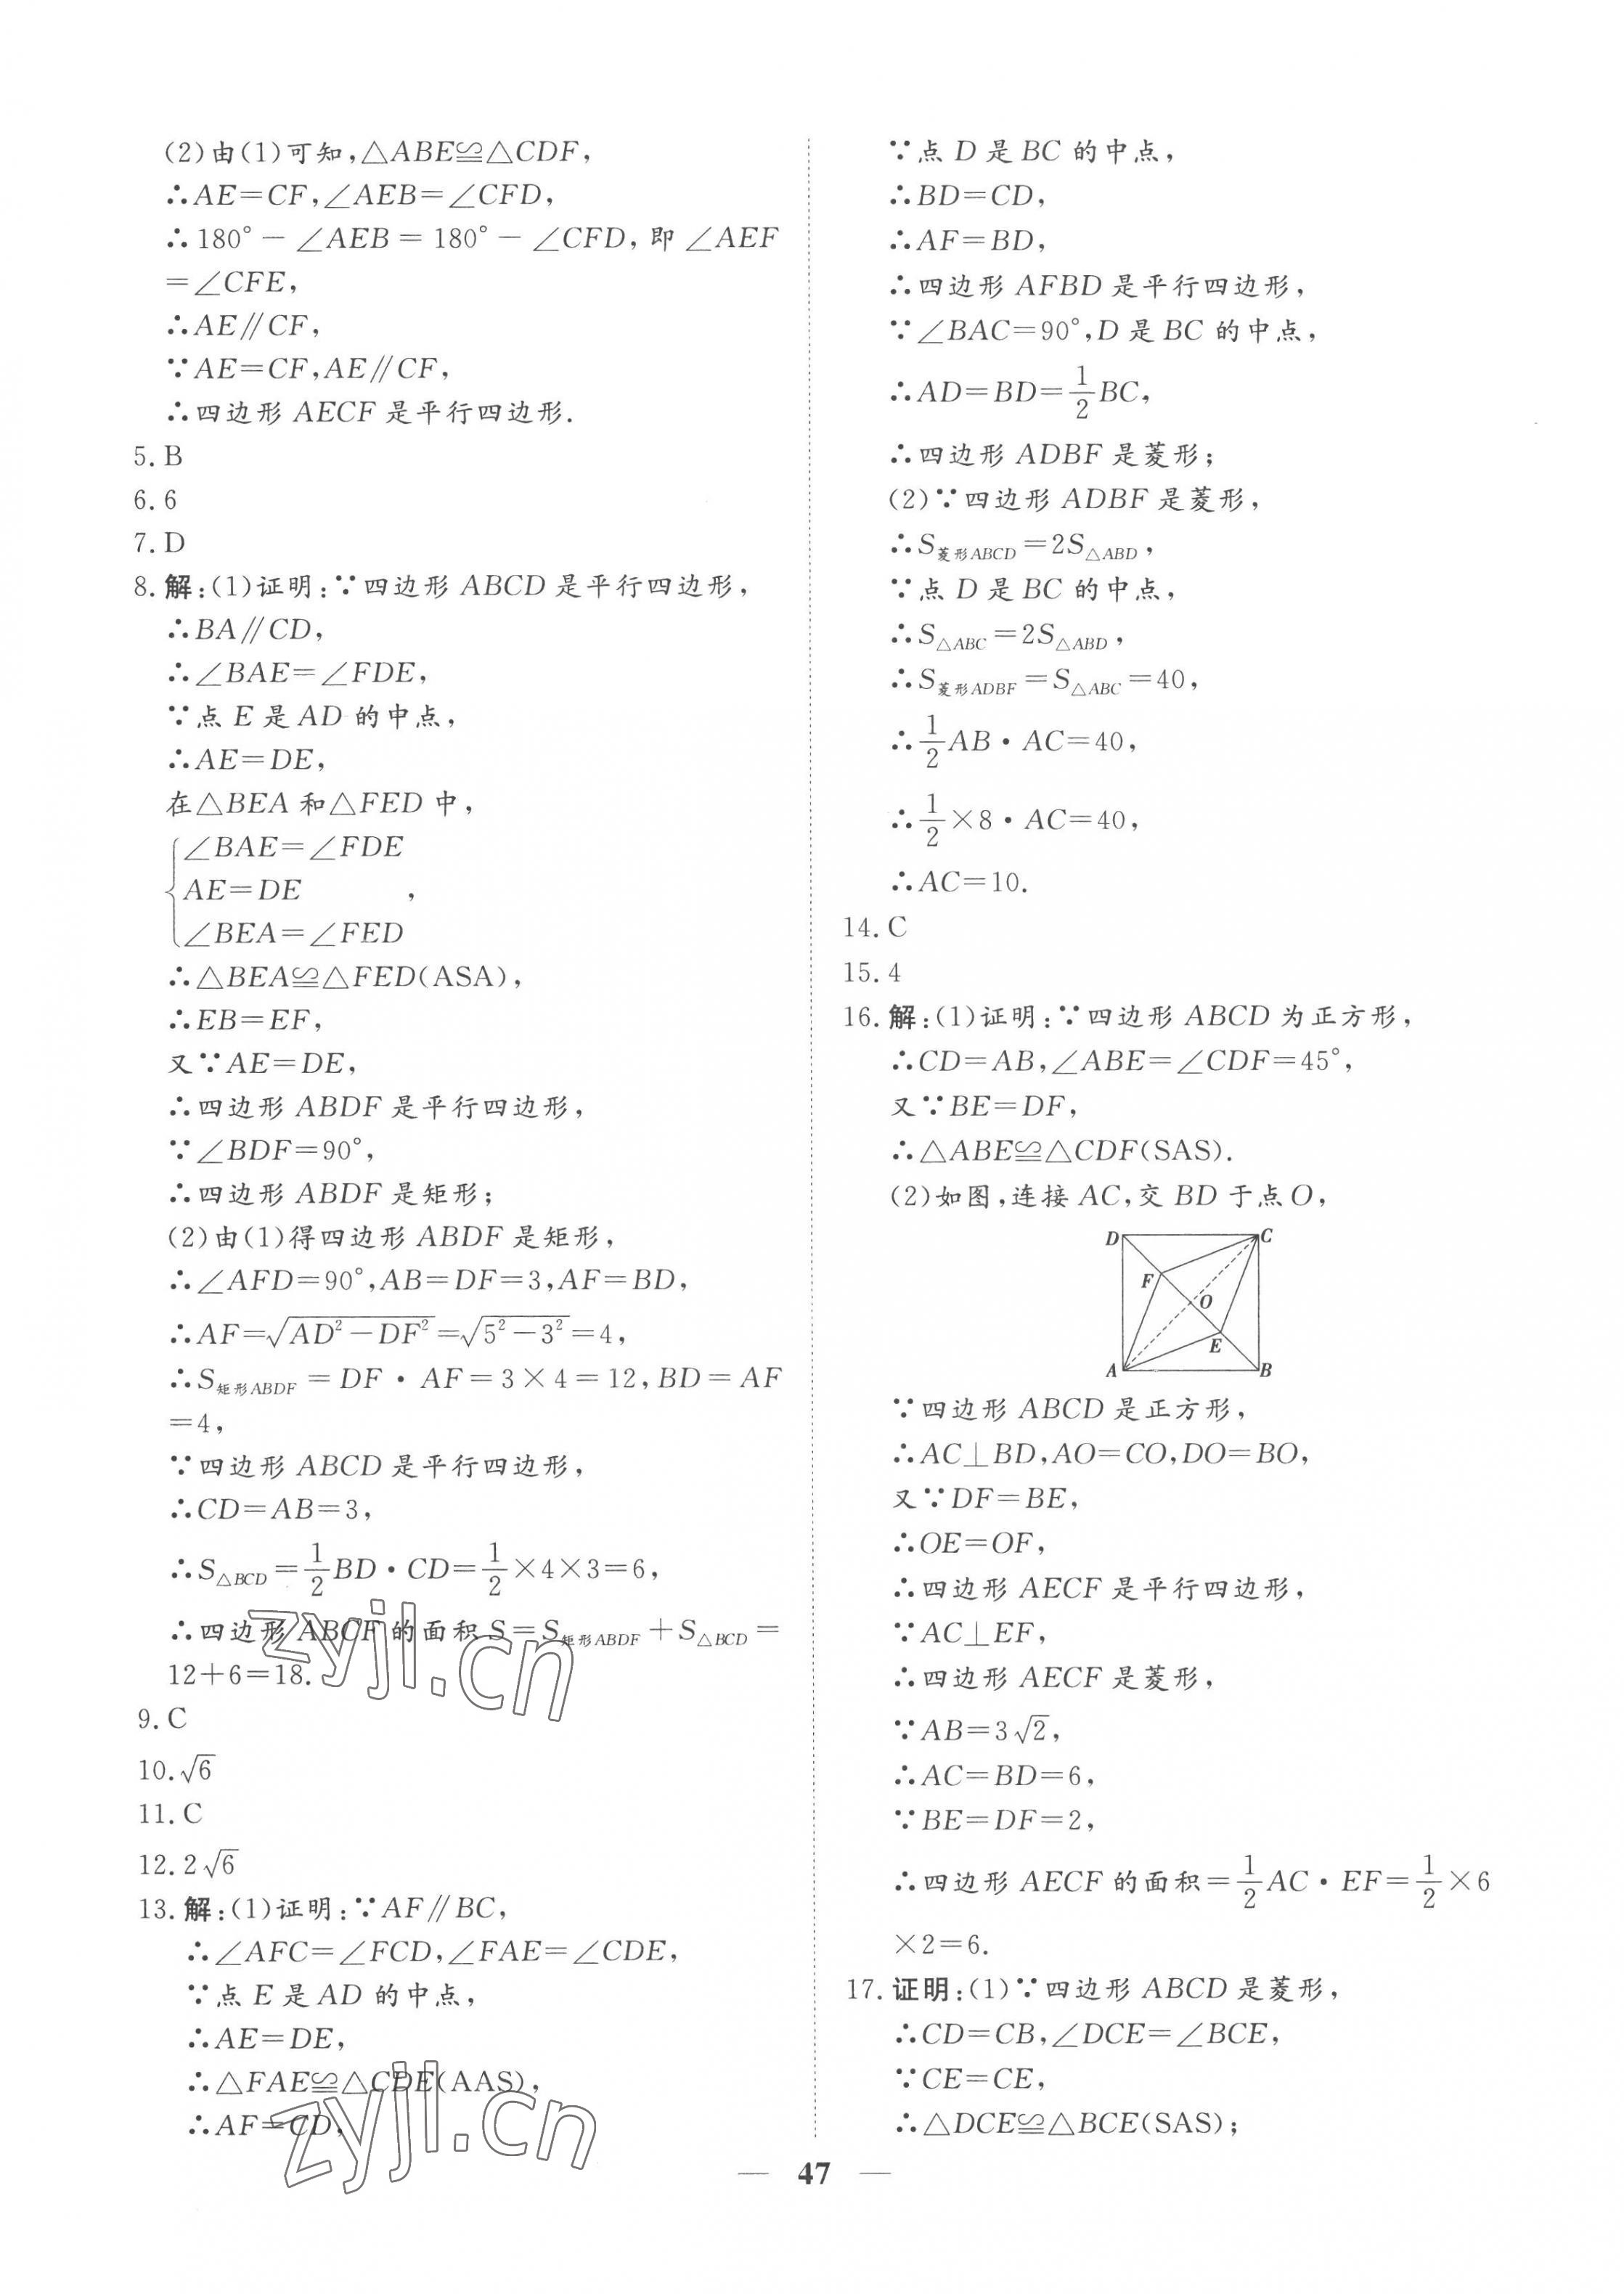 (2)由(1)可知,△ABE≌△CDF,
∴AE=CF,∠AEB=∠CFD,
∴180°-∠AEB=180°-∠CFD,即∠AEF
=∠CFE,
∴AE∥CF,
∵AE=CF,AE∥CF,
∴四边形 AECF 是平行四边形.
5. B
6. 6
7. D
8. 解:(1)证明:∵四边形 ABCD 是平行四边形,
∴BA∥CD,
∴∠BAE=∠FDE,
∵点 E 是 AD 的中点,
∴AE=DE,
在△BEA 和△FED 中,
∠BAE=∠FDE
AE=DE ,
∠BEA=∠FED
∴△BEA≌△FED(ASA),
∴EB=EF,
又∵AE=DE,
∴四边形 ABDF 是平行四边形,
∵∠BDF=90°,
∴四边形 ABDF 是矩形;
(2)由(1)得四边形 ABDF 是矩形,
∴∠AFD=90°,AB=DF=3,AF=BD,
∴AF=√(AD²-DF²)=√(5²-3²)=4,
∴S矩形ABDF=DF·AF=3×4=12,BD=AF
=4,
∵四边形 ABCD 是平行四边形,
∴CD=AB=3,
∴S△BCD=1/2BD·CD=1/2×4×3=6,
∴四边形 ABCF 的面积 S=S矩形ABDF+S△BCD=
12+6=18.
9. C
10. √6
11. C
12. 2√6
13. 解:(1)证明:∵AF∥BC,
∴∠AFC=∠FCD,∠FAE=∠CDE,
∵点 E 是 AD 的中点,
∴AE=DE,
∴△FAE≌△CDE(AAS),
∴AF=CD,
∵点 D 是 BC 的中点,
∴BD=CD,
∴AF=BD,
∴四边形 AFBD 是平行四边形,
∵∠BAC=90°,D 是 BC 的中点,
∴AD=BD=1/2BC,
∴四边形 ADBF 是菱形;
(2)∵四边形 ADBF 是菱形,
∴S菱形ABCD=2S△ABD,
∵点 D 是 BC 的中点,
∴S△ABC=2S△ABD,
∴S菱形ADBF=S△ABC=40,
∴1/2AB·AC=40,
∴1/2×8·AC=40,
∴AC=10.
14. C
15. 4
16. 解:(1)证明:∵四边形 ABCD 为正方形,
∴CD=AB,∠ABE=∠CDF=45°,
又∵BE=DF,
∴△ABE≌△CDF(SAS).
(2)如图,连接 AC,交 BD 于点O,
D C
F
O
E
A B
∵四边形 ABCD 是正方形,
∴AC⊥BD,AO=CO,DO=BO,
又∵DF=BE,
∴OE=OF,
∴四边形 AECF 是平行四边形,
∵AC⊥EF,
∴四边形 AECF 是菱形,
∵AB=3√2,
∴AC=BD=6,
∵BE=DF=2,
∴四边形 AECF 的面积=1/2AC·EF=1/2×6
×2=6.
17. 证明:(1)∵四边形 ABCD 是菱形,
∴CD=CB,∠DCE=∠BCE,
∵CE=CE,
∴△DCE≌△BCE(SAS);
— 47 —
zyjl.cn
zyjl.cn